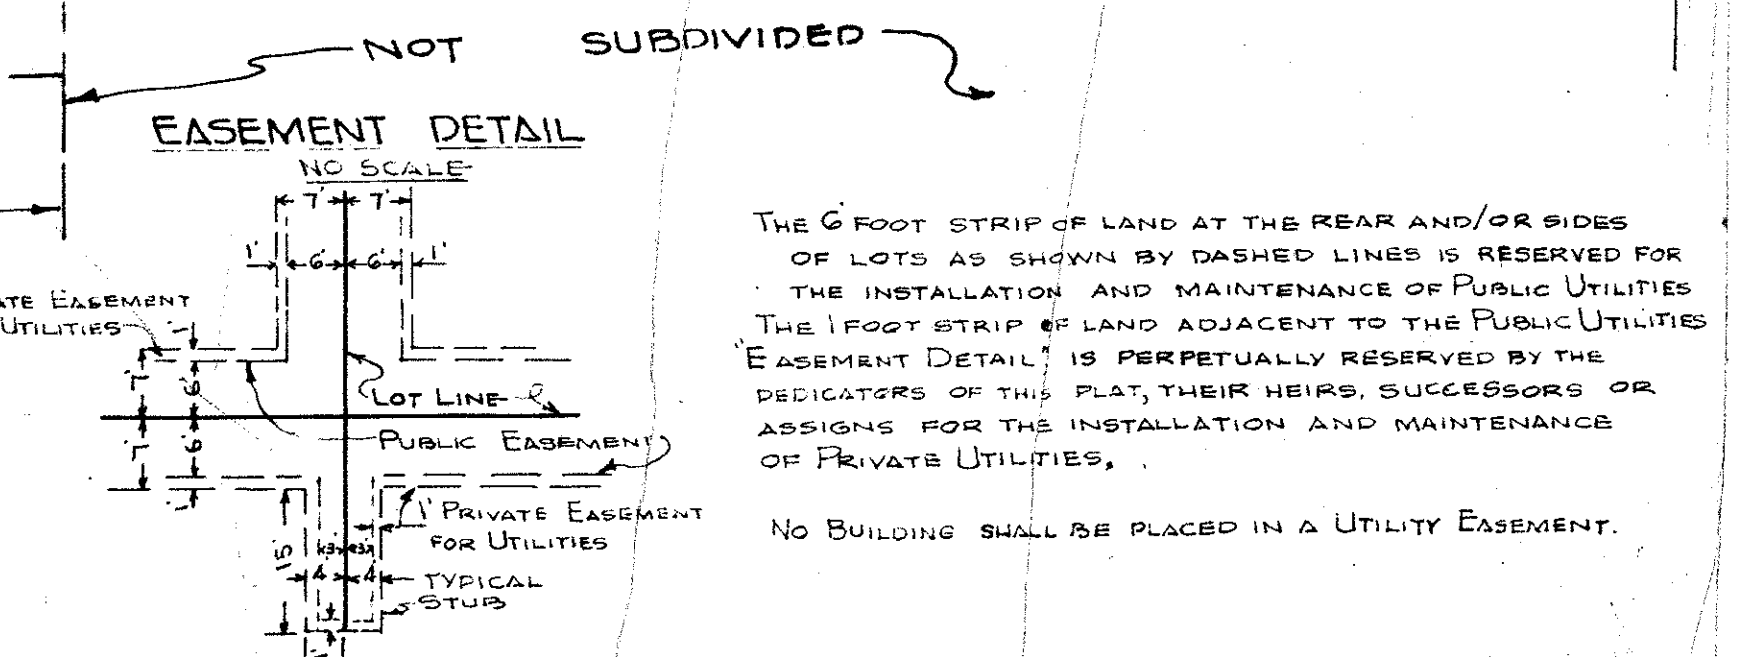 NOT SUBDIVIDED
EASEMENT DETAIL
NO SCALE
7' 7'
1' 6' 6' 1'
ATE EASEMENT
UTILITIES
1'
7' 6'
LOT LINE
7' 6'
PUBLIC EASEMENT
1'
1' PRIVATE EASEMENT
FOR UTILITIES
15' 3' 3'
4' 4' TYPICAL
STUB
1'
THE 6 FOOT STRIP OF LAND AT THE REAR AND/OR SIDES
OF LOTS AS SHOWN BY DASHED LINES IS RESERVED FOR
THE INSTALLATION AND MAINTENANCE OF PUBLIC UTILITIES
THE 1 FOOT STRIP OF LAND ADJACENT TO THE PUBLIC UTILITIES
"EASEMENT DETAIL" IS PERPETUALLY RESERVED BY THE
DEDICATORS OF THIS PLAT, THEIR HEIRS, SUCCESSORS OR
ASSIGNS FOR THE INSTALLATION AND MAINTENANCE
OF PRIVATE UTILITIES.
NO BUILDING SHALL BE PLACED IN A UTILITY EASEMENT.